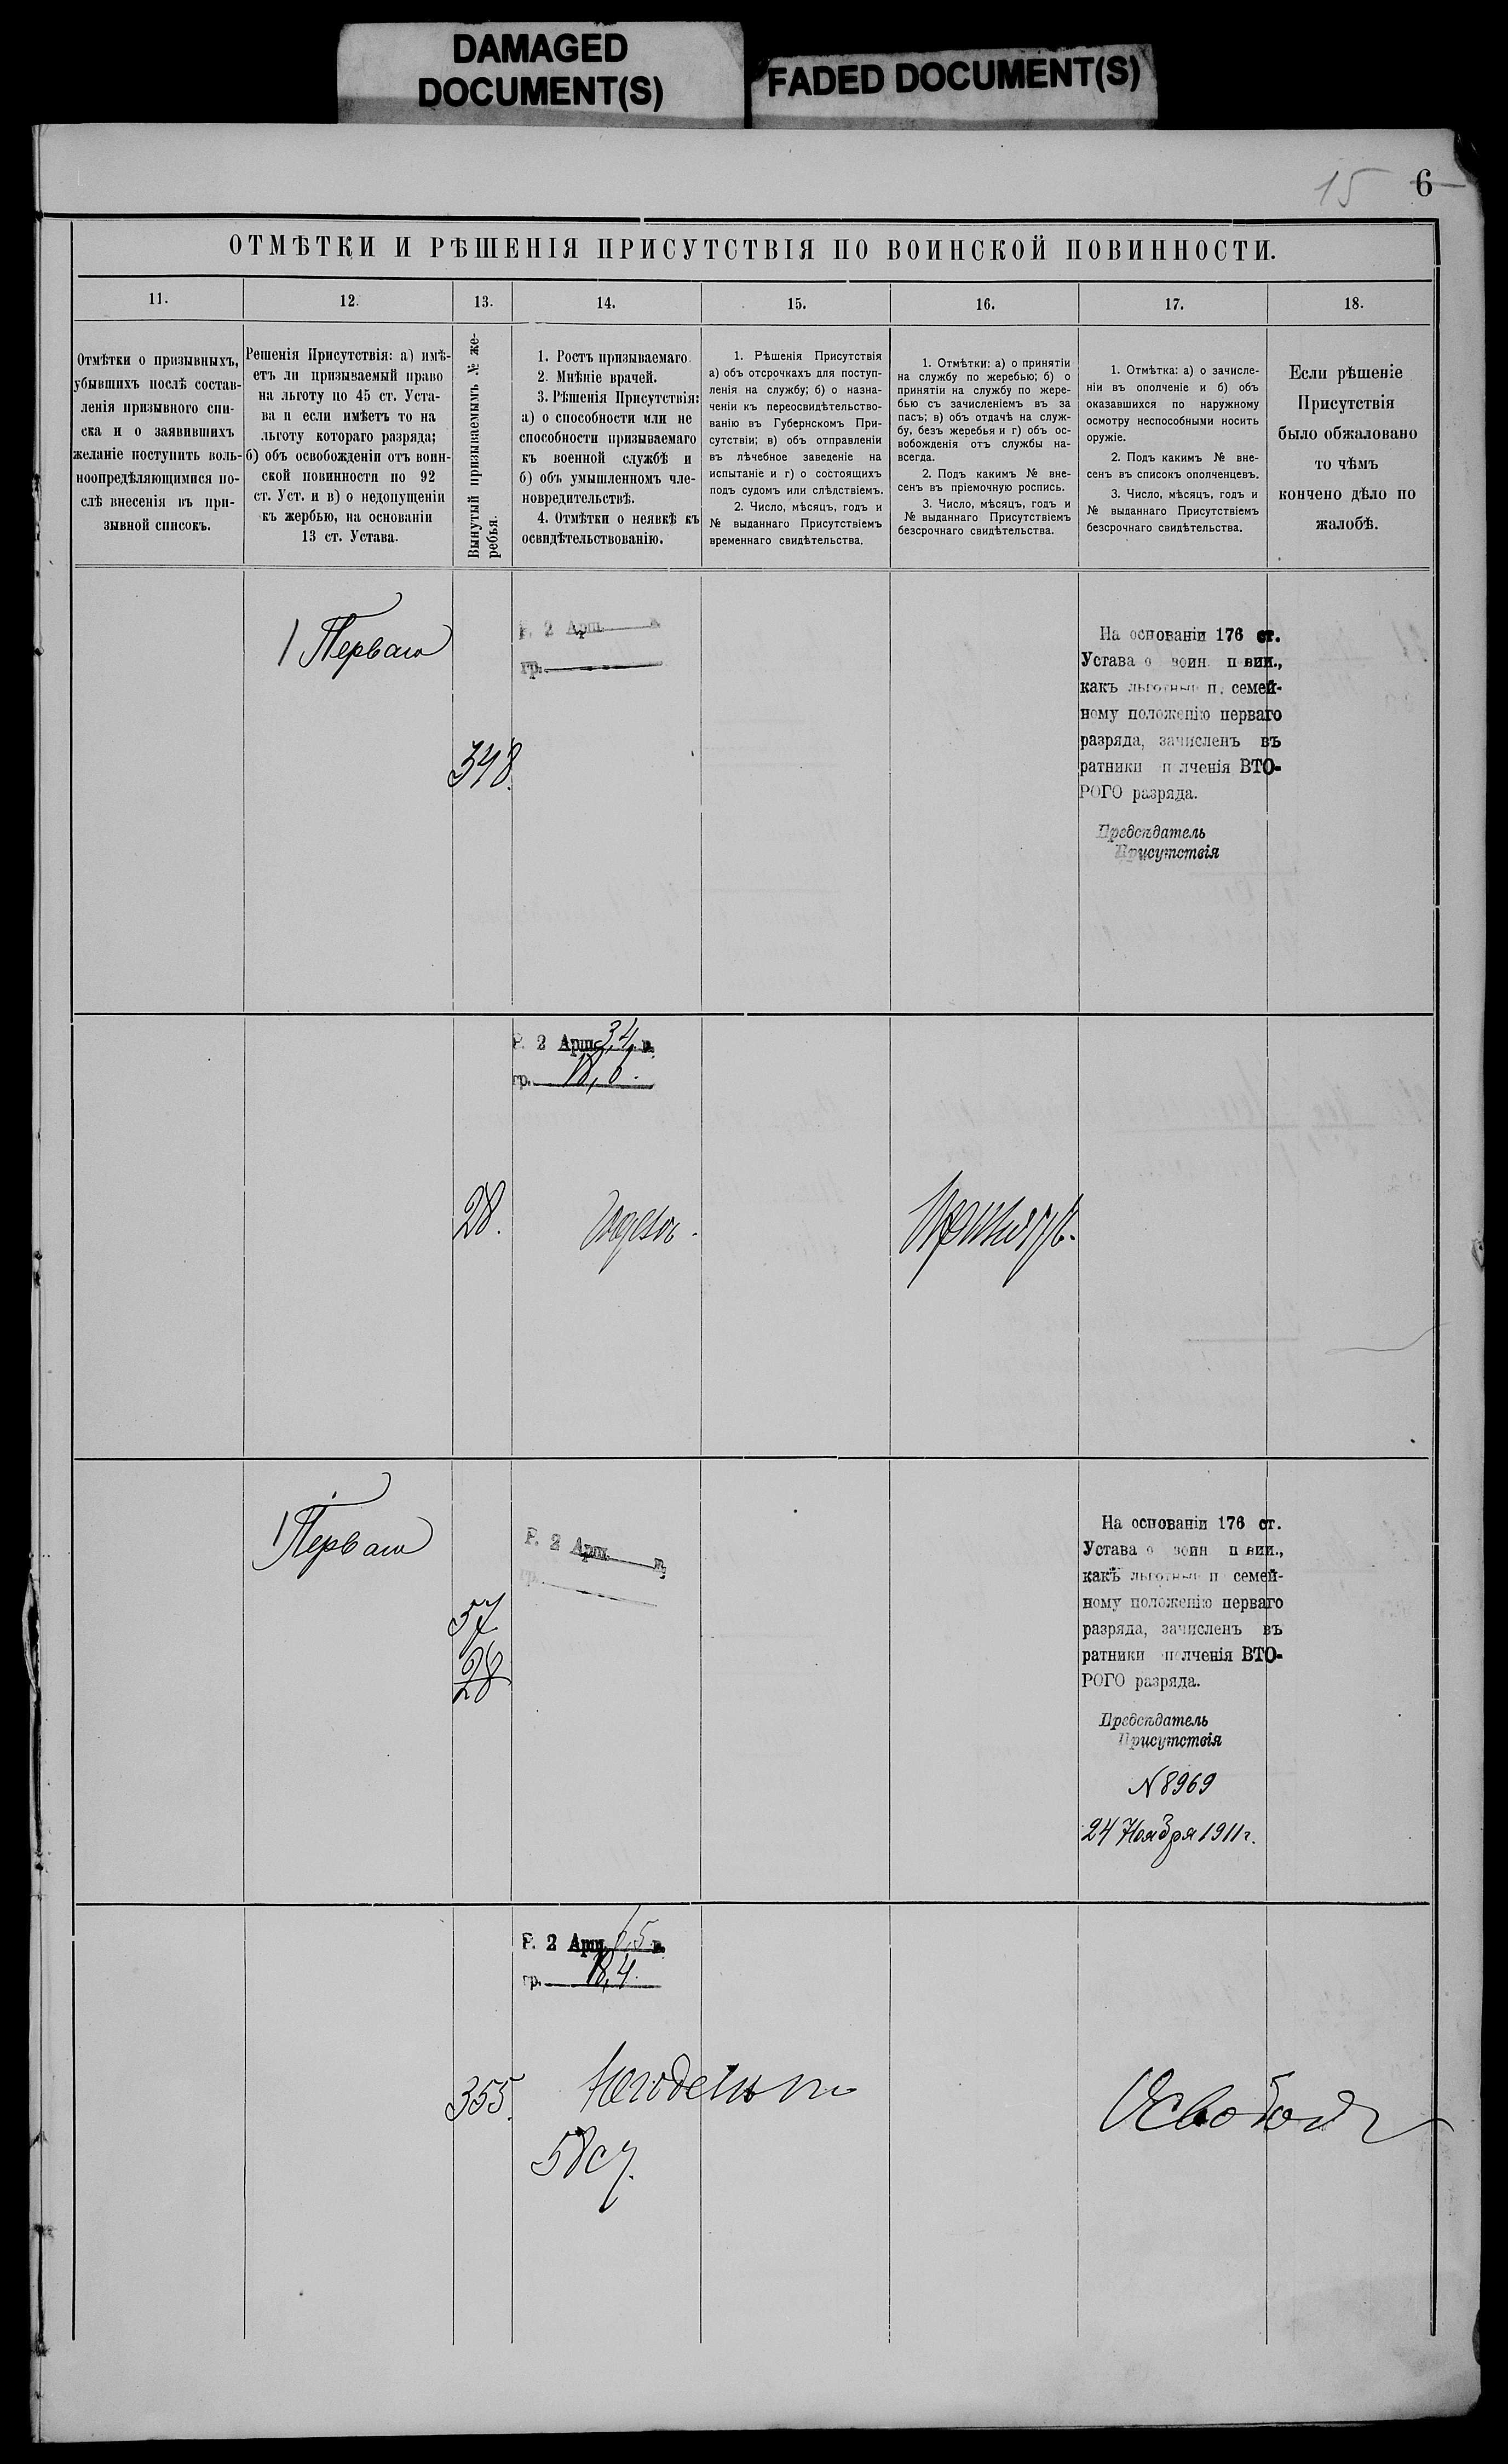 DAMAGED
DOCUMENT(S)
FADED DOCUMENT(S)
15 6
ОТМѢТКИ И РѢШЕНІЯ ПРИСУТСТВІЯ ПО ВОИНСКОЙ ПОВИННОСТИ.
11.
12.
13.
14.
15.
16.
17.
18.
Отмѣтки о призывныхъ,
убывшихъ послѣ состав-
ленія призывного спи-
ска и о заявившихъ
желаніе поступить воль-
ноопредѣляющимися по-
слѣ внесенія въ при-
зывной списокъ.
Решенія Присутствія: а) имѣ-
етъ ли призываемый право
на льготу по 45 ст. Уста-
ва и если имѣетъ то на
льготу котораго разряда;
б) объ освобожденіи отъ воин-
ской повинности по 92
ст. Уст. и в) о недопущеніи
къ жербью, на основаніи
13 ст. Устава.
Вынутый призываемымъ № же-
ребья.
1. Ростъ призываемаго.
2. Мнѣніе врачей.
3. Рѣшенія Присутствія:
а) о способности или не
способности призываемаго
къ военной службѣ и
б) объ умышленномъ чле-
новредительствѣ.
4. Отмѣтки о неявкѣ къ
освидѣтельствованію.
1. Рѣшенія Присутствія
а) объ отсрочкахъ для поступ-
ленія на службу; б) о назна-
ченіи къ переосвидѣтельство-
ванію въ Губернскомъ При-
сутствіи; в) объ отправленіи
въ лѣчебное заведеніе на
испытаніе и г) о состоящихъ
подъ судомъ или слѣдствіемъ.
2. Число, мѣсяцъ, годъ и
№ выданнаго Присутствіемъ
временнаго свидѣтельства.
1. Отмѣтки: а) о принятіи
на службу по жеребью; б) о
принятіи на службу по жере-
бью съ зачисленіемъ въ за
пасъ; в) объ отдачѣ на служ-
бу, безъ жеребья и г) объ ос-
вобожденія отъ службы на-
всегда.
2. Подъ какимъ № вне-
сенъ въ пріемочную роспись.
3. Число, мѣсяцъ, годъ и
№ выданнаго Присутствіемъ
безсрочнаго свидѣтельства.
1. Отмѣтка: а) о зачисле-
ніи въ ополченіе и б) объ
оказавшихся по наружному
осмотру неспособными носить
оружіе.
2. Подъ какимъ № вне-
сенъ въ списокъ ополченцевъ.
3. Число, мѣсяцъ, годъ и
№ выданнаго Присутствіемъ
безсрочнаго свидѣтельства.
Если рѣшеніе
Присутствія
было обжаловано
то чѣмъ
кончено дѣло по
жалобѣ.
1 Перваго
348.
Р. 2 Арш. в.
гр.
На основаніи 176 ст.
Устава о воин. п вин.,
какъ льготный п. семей-
ному положенію перваго
разряда, зачисленъ въ
ратники п лченія ВТО-
РОГО разряда.
Предсѣдатель
Присутствія
Р. 2 Арш. 3,4 в.
гр. 18,6.
28.
Годенъ.
Принятъ.
1 Перваго
57
28
Р. 2 Арш. в.
гр.
На основаніи 176 ст.
Устава о воин п вин.,
какъ льготный п семей-
ному положенію перваго
разряда, зачисленъ въ
ратники п лченія ВТО-
РОГО разряда.
Предсѣдатель
Присутствія
N 8969
24 Ноября 1911 г.
Р. 2 Арш. 6,5 в.
гр. 18,4.
355.
58 с